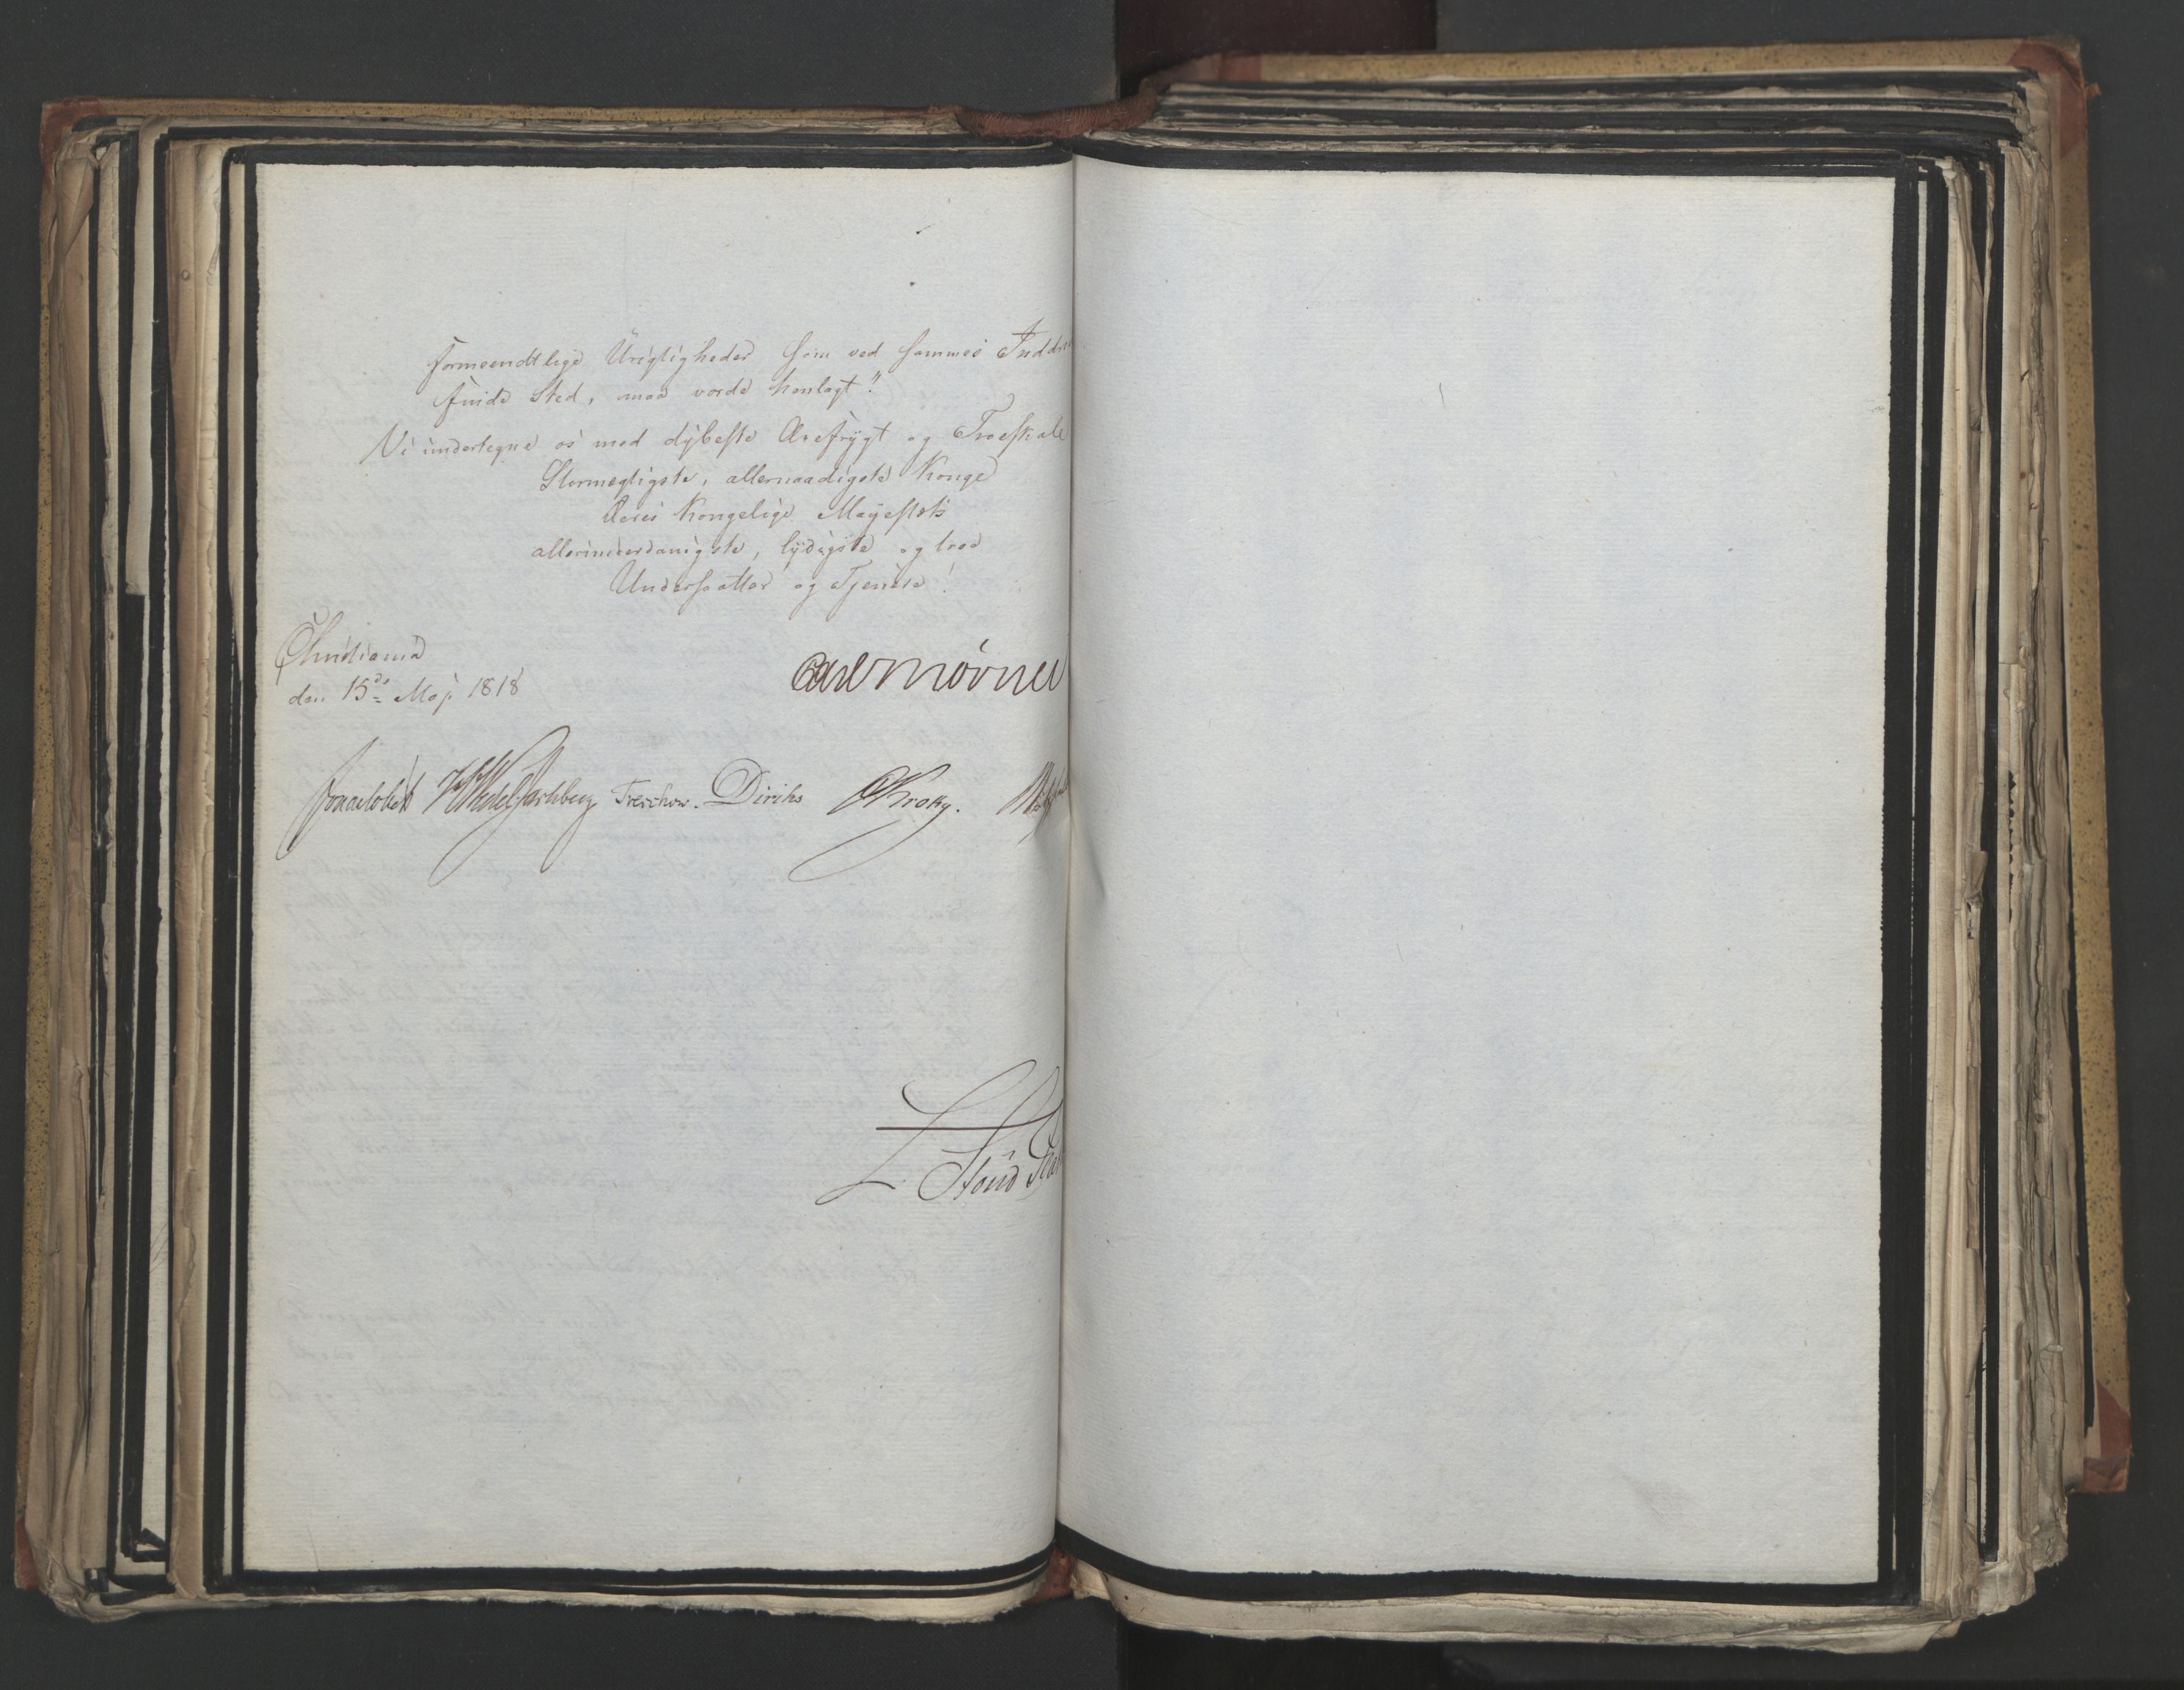 formeendtlige Urigtigheder som ved sammes Inddri
finde Sted, maa vorde henlagt."
Vi undertegne os med dybeste Ærefrygt og Troeskab
Stormægtigste, allernaadigste Konge
Deres Kongelige Majestæts
allerunderdanigste, lydigste og troe
Undersaatter og Tjenere!
Christiania
den 15de Maj 1818
Carl Mörner
Sommerhielm HWedel Jarlsberg Treschow. Diriks CKrohg.